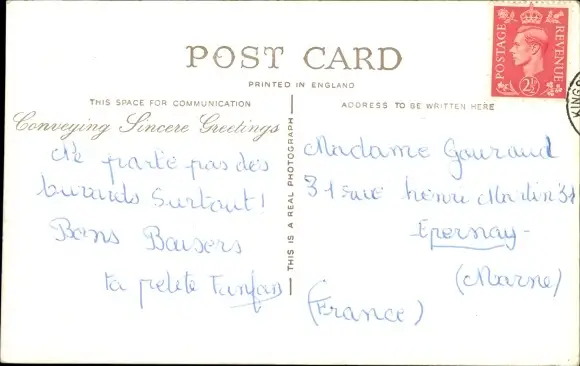 POST CARD
PRINTED IN ENGLAND
THIS SPACE FOR COMMUNICATION
ADDRESS TO BE WRITTEN HERE
Conveying Sincere Greetings
THIS IS A REAL PHOTOGRAPH
POSTAGE
REVENUE
2½
KINGS
parle pas des
surtout!
Bons Baisers
ta petite
Madame Gouraud
31 rue henri Martin 31
Epernay
(Marne)
(France)